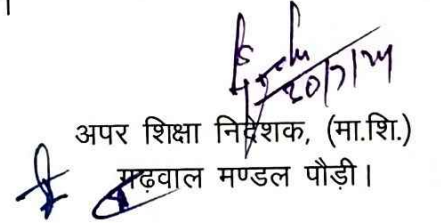 20/7/24
अपर शिक्षा निदेशक, (मा.शि.)
गढ़वाल मण्डल पौड़ी।